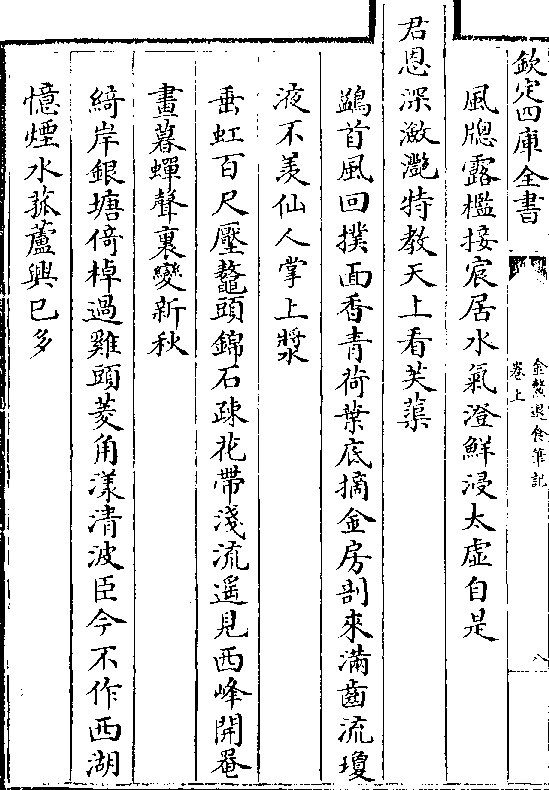 欽定四庫全書
金鰲退食筆記
卷上
八
風牕露檻接宸居水氣澄鮮浸太虛自是
君恩深瀲灎特教天上看芙蕖
鷁首風回撲面香青荷葉底摘金房剖來滿齒流瓊
液不羡仙人掌上漿
垂虹百尺壓鼇頭錦石疎花帶淺流遥見西峰開罨
畫暮蟬聲裏變新秋
綺岸銀塘倚棹過雞頭菱角漾清波臣今不作西湖
憶煙水菰蘆興已多